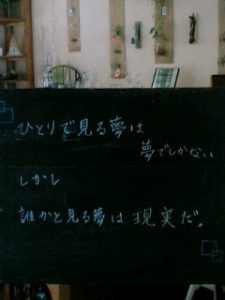 ひとりで見る夢は
夢でしかない
しかし
誰かと見る夢は現実だ。